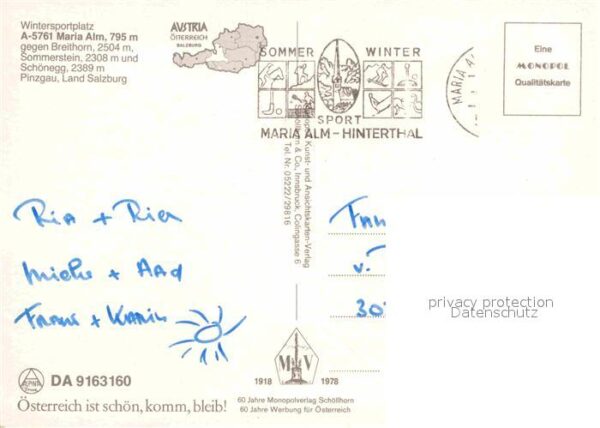 Wintersportplatz
A-5761 Maria Alm, 795 m
gegen Breithorn, 2504 m,
Sommerstein, 2308 m und
Schönegg, 2389 m
Pinzgau, Land Salzburg
AUSTRIA
ÖSTERREICH
SALZBURG
SOMMER WINTER
SPORT
MARIA ALM - HINTERTHAL
MARIA A
Eine
MONOPOL
Qualitätskarte
Kunst- und Ansichtskarten-Verlag
& Co., Innsbruck, Colingasse 6
Tel. Nr. 05222/29816
Ria + Rien
Mieke + Aad
Frans + Karin
Fam
v.
30
privacy protection
Datenschutz
DA 9163160
Österreich ist schön, komm, bleib!
M V
1918 1978
60 Jahre Monopolverlag Schöllhorn
60 Jahre Werbung für Österreich